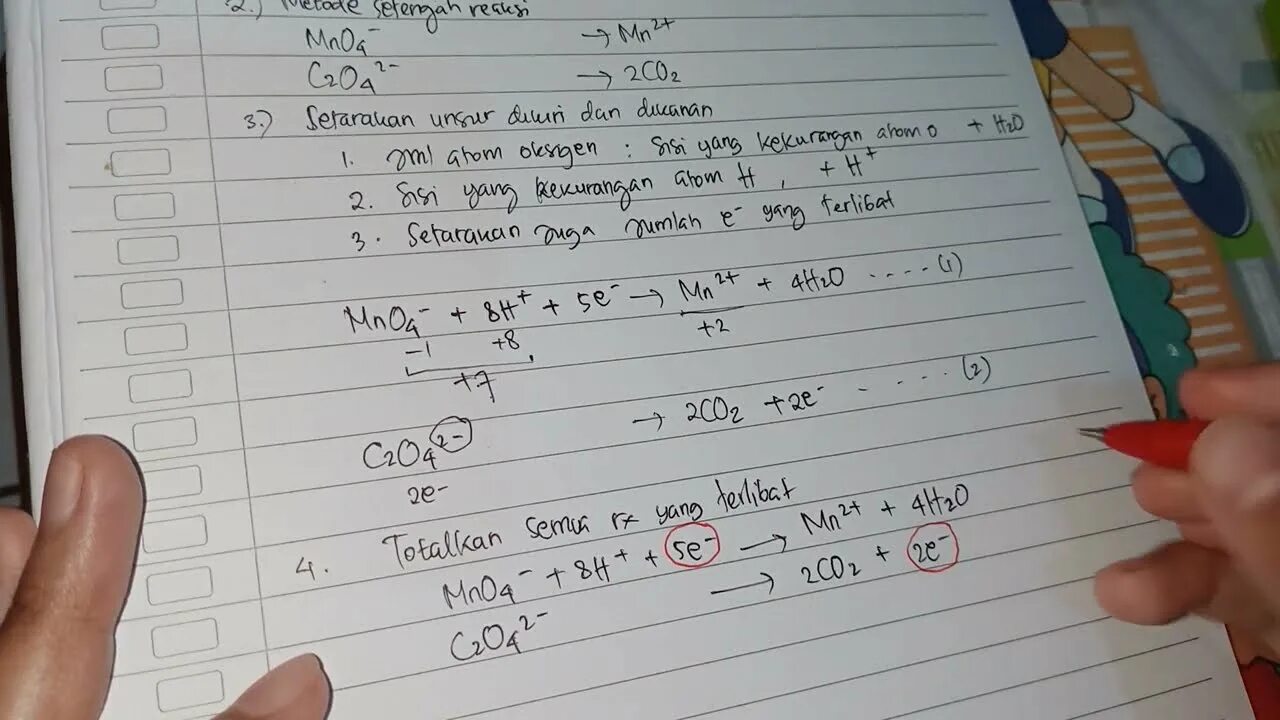 2.) Metode setengah reaksi
MnO₄⁻ → Mn²⁺
C₂O₄²⁻ → 2CO₂
3.) Setarakan unsur dikiri dan dikanan
1. Jml atom oksigen : sisi yang kekurangan atom O + H₂O
2. Sisi yang kekurangan atom H , + H⁺
3. Setarakan juga jumlah e⁻ yang terlibat
MnO₄⁻ + 8H⁺ + 5e⁻ → Mn²⁺ + 4H₂O ....(1)
-1 +8 +2
+7
C₂O₄²⁻ → 2CO₂ + 2e⁻ .....(2)
2e-
4. Totalkan semua rx yang terlibat
MnO₄⁻ + 8H⁺ + 5e⁻ → Mn²⁺ + 4H₂O
C₂O₄²⁻ → 2CO₂ + 2e⁻